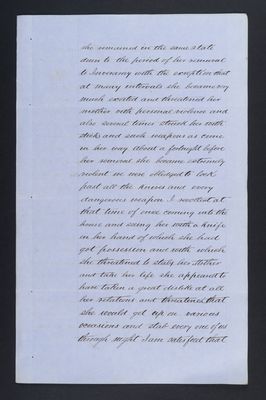 she remained in the same state
down to the period of her removal
to Inveresk with the exception that
at many intervals she became very
much excited and threatened her
mother with personal violence and
also several times struck her with
sticks and such weapons as came
in her way About a fortnight before
her removal she became extremely
violent we were obliged to lock
past all the knives and every
dangerous weapon I recollect at
that time of once coming into the
house and seeing her with a knife
in her hand of which she had
got possession and with which
she threatened to stab her Mother
and take her life she appeared to
have taken a great dislike at all
her relations and threatened that
she would get up on various
occasions and stab every one of us
through night I am satisfied that